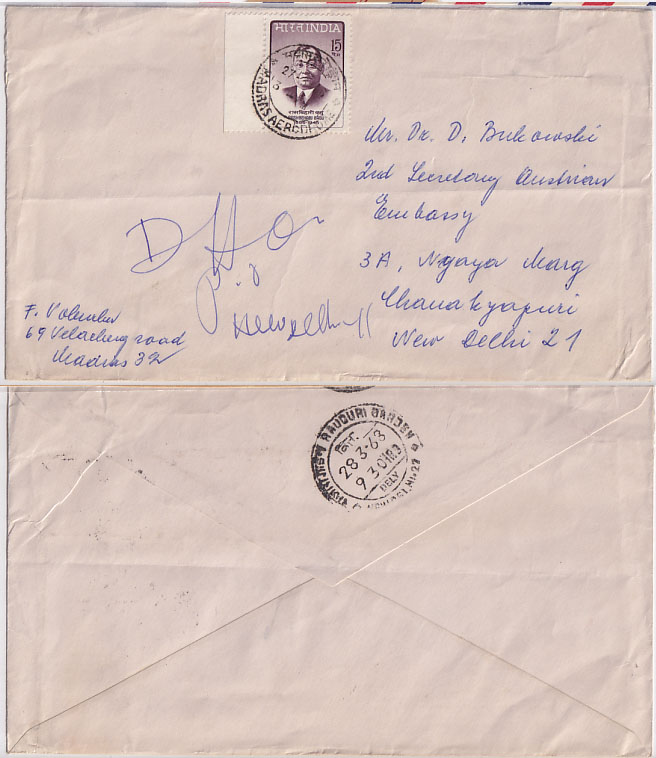 भारत INDIA
15
MADRAS AERODROME
Mr. Dr. D. Bukowski
2nd Secretary Austrian
Embassy
3A, Ngaya Marg
Chanakyapuri
New Delhi 21
D
New Delhi-11
F.
69 Velachery road
Madras 32
RAUDURI GARDEN
28-3-68
9 30
DELY